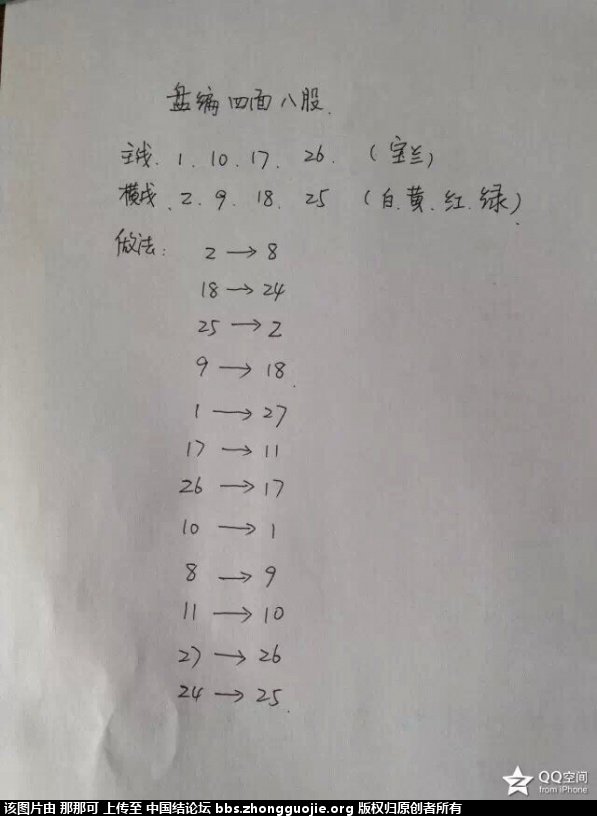 盘编四面八股.
主线. 1. 10. 17. 26. (宝兰)
横线. 2. 9. 18. 25 (白.黄.红.绿)
做法: 2 → 8
18 → 24
25 → 2
9 → 18.
1 → 27
17 → 11
26 → 17
10 → 1
8 → 9
11 → 10
27 → 26
24 → 25.
QQ空间
from iPhone
该图片由 那那可 上传至 中国结论坛 bbs.zhongguojie.org 版权归原创者所有